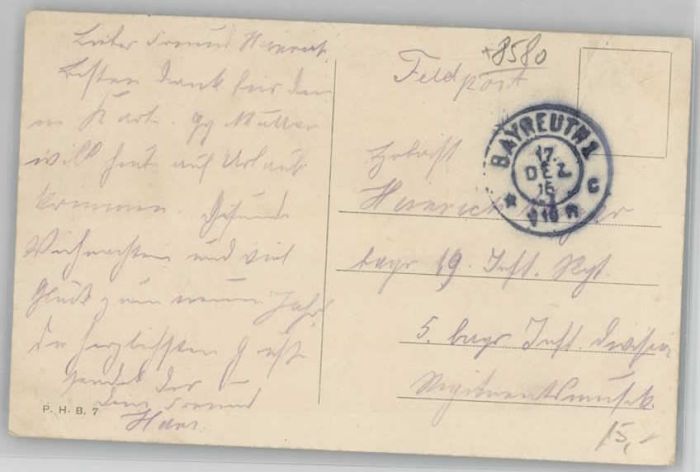 Lieber Freund Heinrich
besten Dank für den
Kart. Gg Müller
will heut auf Urlaub
kommen. Gesunde
Weihnachten und viel
Glück zum neuen Jahr
die herzlichsten Grüße
sendet Dir
Dein Freund
Hans
P. H. B. 7
+8580
Feld
post
BAYREUTH 2
17.
DEZ.
16
C
Heinrich
bayr 19. Inft. Rgt.
5. bayr Inft Division
Regimentsmusik
15,-